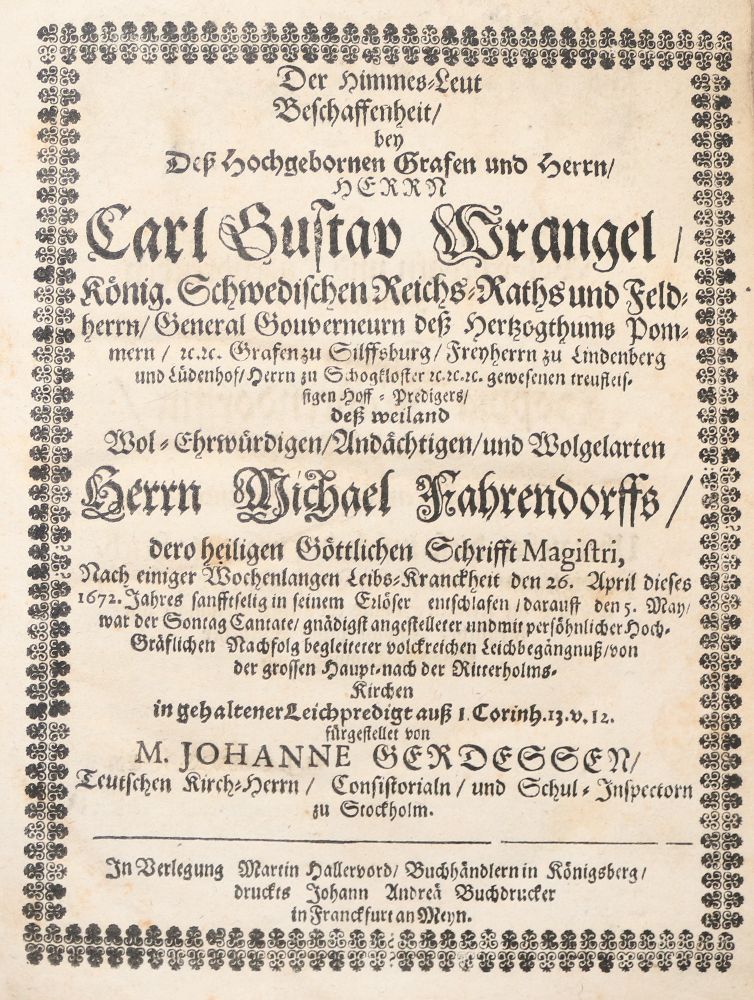 Der Himmes-Leut
Beschaffenheit/
bey
Deß Hochgebornen Grafen und Herrn/
HERRN
Carl Gustav Wrangel/
König. Schwedischen Reichs-Raths und Feld-
herrn/ General Gouverneurn deß Hertzogthums Pom-
mern/ ꝛc.ꝛc. Grafen zu Silffsburg/ Freyherrn zu Lindenberg
und Lüdenhof/ Herrn zu Schogkloster ꝛc.ꝛc.ꝛc. gewesenen treufleis-
sigen Hoff-Predigers/
deß weiland
Wol-Ehrwürdigen/Andächtigen/und Wolgelarten
Herrn Michael Fahrendorffs/
dero heiligen Göttlichen Schrifft Magistri,
Nach einiger Wochenlangen Leibs-Kranckheit den 26. April dieses
1672. Jahres sanfftselig in seinem Erlöser entschlafen/darauft den 5. May/
war der Sontag Cantate/ gnädigst angestelleter und mit persöhnlicher Hoch-
Gräflichen Nachfolg begleiteter volckreichen Leichbegängnuß/von
der grossen Haupt-nach der Ritterholms-
Kirchen
in gehaltener Leichpredigt auß 1. Corinh.13.v.12.
fürgestellet von
M. JOHANNE GERDESSEN/
Teutschen Kirch-Herrn/ Consistorialn/ und Schul-Inspectorn
zu Stockholm.
In Verlegung Martin Hallervord/ Buchhändlern in Königsberg/
druckts Johann Andreä Buchdrucker
in Franckfurt an Meyn.